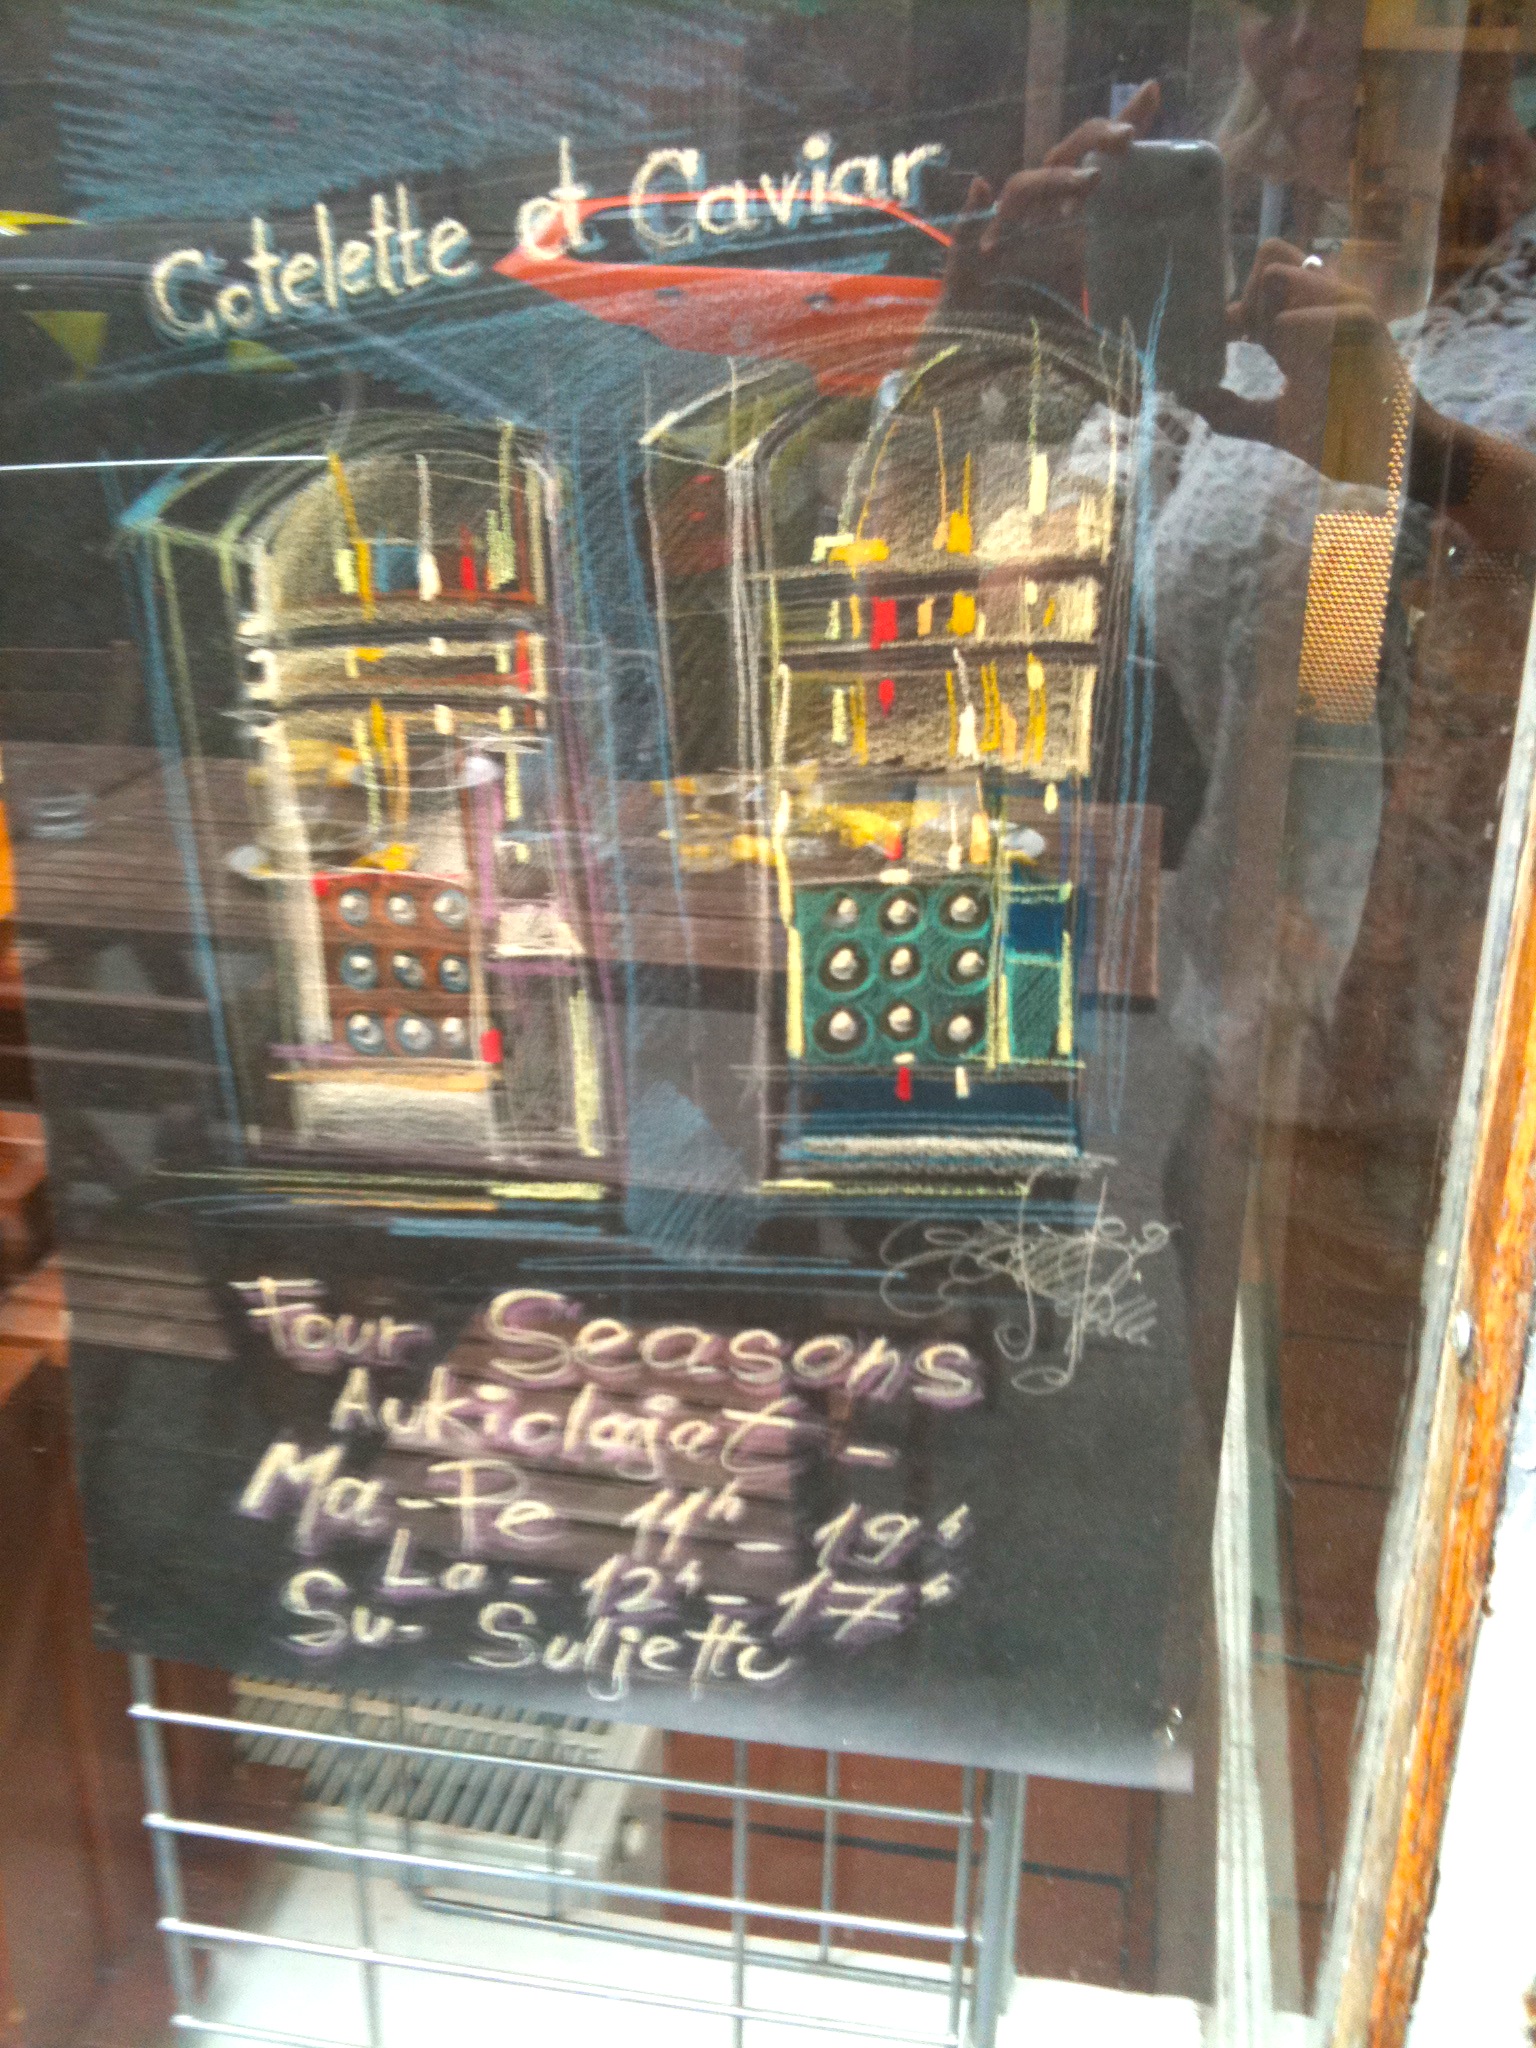 Cotelette et Caviar
Four Seasons
Aukiolajat -
Ma - Pe 11h - 19h
La - 12h - 17h
Su - Suljettu